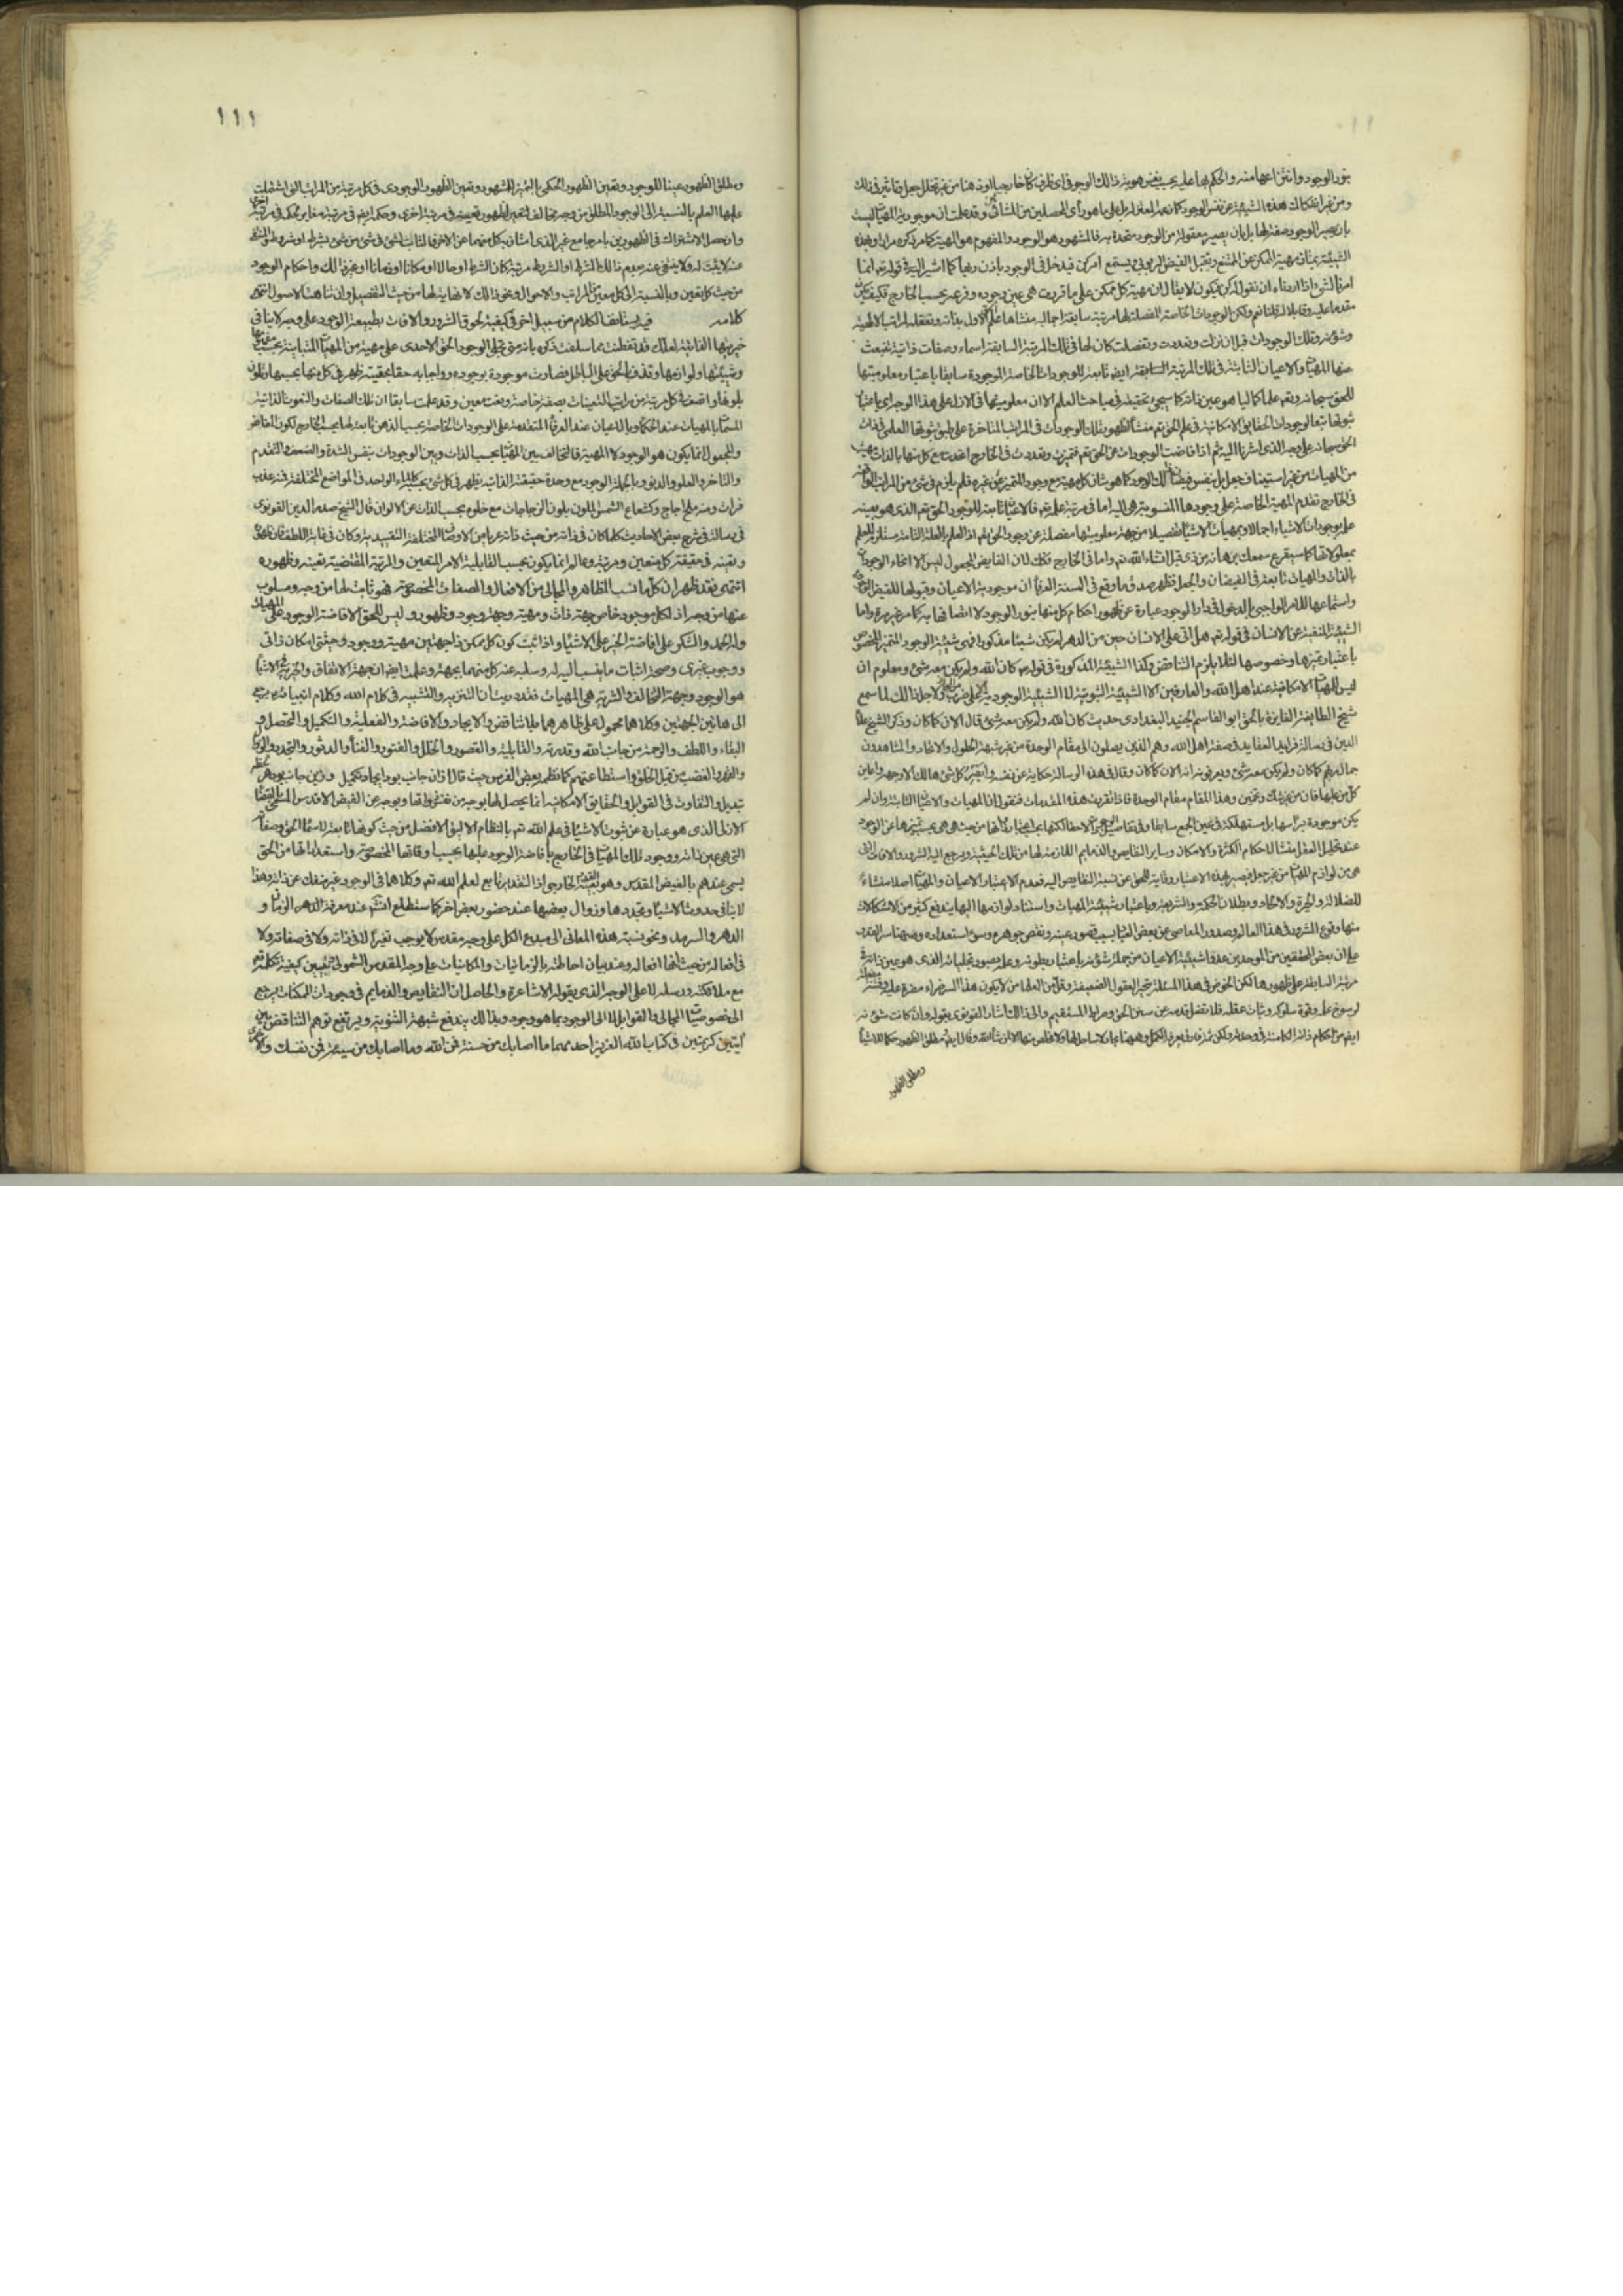 بنور الوجود وانتزاعها منه والحكم بها عليه بحسب نفس هوية ذلك الوجود فى اى ظرف كان خارجيا او ذهنيا من غير تخلل جعل وتاثير فى ذلك
ومن غير انفكاك هذه الشيئية عن نفس الوجود كما زعمه المعتزلة بل على ما هو رأى المحصلين من المشائين وقد علمت ان موجودية المهيات ليست
بان يصير الوجود صفة لها بل بان يصير معقولة من الوجود متحدة به فالمشهود هو الوجود والمفهوم هو المهية كما مر ذكره مرارا وبهذه
الشيئية يمتاز مهية الممكن عن الممتنع وتقبل الفيض الربوبى ويستمع امر كن فيدخل فى الوجود باذن ربها كما اشير اليه فى قوله تع انما
امرنا لشئ اذا اردناه ان نقول له كن فيكون لا يقال ان مهية كل ممكن على ما قررت هى عين وجوده وفرعه بحسب الخارج فكيف يكون
مقدما عليه وقابلا له لانا نقول نعم ولكن الوجودات الخاصة المفصلة لها مرتبة سابقة اجمالية منشاها علم الاول بذاته وتعقله لمراتب الهيته
وشؤنه وتلك الوجودات قبل ان نزلت وتعددت وتفصلت كان لها فى تلك المرتبة السابقة اسماء وصفات ذاتية تنبعث
منها المهيات والاعيان الثابتة فى تلك المرتبة السابقة ايضا تابعة للوجودات الخاصة الموجودة سابقا باعتبار معلوميتها
للحق سبحانه وتع علما كماليا هو عين ذاته كما سيجئ تحقيقه فى مباحث العلم الا ان معلوميتها فى الازل على هذا الوجه اى باعتبار
ثبوتها تبعا لوجودات الحقايق الامكانية فى علم الحق تع منشأ لظهور تلك الوجودات فى المراتب المتاخرة على طبق ثبوتها العلمى فى ذات
الحق سبحانه على وجه الذى اشرنا اليه ثم اذا فاضت الوجودات عن الحق تع وتميزت وتعددت فى الخارج اتحدت مع كل منها بالذات مهية
من المهيات من غير استيناف جعل بل بنفس فيضان ذلك الوجود كما هو شان كل مهية مع وجوده المتميز عن غيره فلم يلزم فى شئ من المراتب الواقعة
فى الخارج تقدم المهية الخاصة على وجودها المنسوبة هى اليه اما فى مرتبة علمه تع فالاعيان تابعة لوجود الحق تع الذى هو بعينه
علم بوجودات الاشياء اجمالا وبمهيات الاشياء تفصيلا من جهة معلوميتها مفصلة عن وجود الحق تع اذ العلم بالعلة التامة مستلزم للعلم
بمعلولاتها كما سيقرع سمعك برهانه من ذى قبل انشاء الله تع واما فى الخارج فكذلك لان الفايض والمجعول ليس الا انحاء الوجودات
بالذات والمهيات تابعة فى الفيضان والجعل فظهر صدق ما وقع فى السنة العرفاء ان موجودية الاعيان وقبولها للفيض الوجودى
واستماعها للامر الواجبى بالدخول فى دار الوجود عبارة عن ظهور احكام كل منها بنور الوجود لا اتصافها به كما مر غير مرة واما
الشيئية المنفية عن الانسان فى قوله تع هل اتى على الانسان حين من الدهر لم يكن شيئا مذكورا فهى شيئية الوجود المتميز المخصوص
باعتبار تميزها وخصوصها لئلا يلزم التناقض وكذا الشيئية المذكورة فى قوله ص كان الله ولم يكن معه شئ ومعلوم ان
ليس للمهيات الامكانية عند اهل الله والعارفين الا الشيئية الثبوتية لا الشيئية الوجودية الا على ضرب من المجاز ولاجل ذلك لما سمع
شيخ الطايفة الفايزة بالحق ابو القاسم الجنيد البغدادى حديث كان الله ولم يكن معه شئ قال الان كما كان وذكر الشيخ علاء
الدين فى رسالة فرايد العقايد فى صفة اهل الله وهم الذين يصلون الى مقام الوحدة من غير شبهة الحلول والاتحاد والمشاهدون
جمال ربهم كما كان ولم يكن معه شئ ويعرفون انه الان كما كان وقال فى هذه الرسالة حكاية عن نفسه وابصر كل شئ هالك الا وجهه واعاين
كل من عليها فان من غير شك وتخمين وهذا المقام مقام الوحدة فاذا تقررت هذه المقدمات فنقول ان المهيات والاعيان الثابتة وان لم
يكن موجودة براسها بل مستهلكة فى عين الجمع سابقا وفى تفاصيل الوجودات لاحقا لكنها بحسب اعتبار ذاتها من حيث هى هى بحسب تميزها عن الوجود
عند تحليل العقل منشأ لاحكام الكثرة والامكان وساير النقايص والذمايم اللازمة لها من تلك الحيثية ويرجع اليه الشرور والافات التى
هى من لوازم المهيات من غير جعل فيصير بهذه الاعتبار وقاية للحق عن نسبة النقايص اليه فعدم الاعتبار الاعيان والمهيات اصلا منشاء
للضلالة والحيرة والالحاد وبطلان الحكمة والشريعة وباعتبار شيئية المهيات واستناد لوازمها اليها يندفع كثير من الاشكالات
منها وقوع الشرور فى هذا العالم وصدور المعاصى عن بعض العباد بسبب قصور عينه ونقص جوهره وسوء استعداده وههنا سر القدر
على ان بعض المحققين من الموحدين عدوا شيئية الاعيان من جملة شؤنه باعتبار بطونه وعلمه بصور تجلياته الذى هو عين ذاته فى
مرتبة السابقة على ظهورها لكن الخوض فى هذا المسئلة يحير العقول الضعيفة وقل من العلماء من لا يكون هذا السر ضراء مضرة عليه وفتنة مضلة
لرسوخ علمه وقوة سلوكه وثبات عقله فلا تضل قدمه عن سنن الحق وصراط المستقيم والى ذلك اشار القونوى بقوله وان كانت شؤنه
ايضا من احكام ذاته الكامنة فى وحدته ولكن ثمة فارق يعرفه الكمل وههنا بحار لا ساحل لها ولا مخلص منها الا لمن شاء الله وقال ايضا مطلق الظهور حكما للاشياء
ومطلق الظهور
١١١
ومطلق الظهور عينا للوجود وتعين الظهور الحكمى بالتميز المشهود وتعين الظهور الوجودى فى كل مرتبة من المراتب التى اشتملت
عليها العلم بالنسبة الى الوجود المطلق من وجه مخالف لتعين الظهور تعينه فى مرتبة اخرى وحكمه ايضا فى مرتبة مغاير لحكمه فى مرتبة اخرى
وان حصل الاشتراك فى الظهورين بامر جامع غير الذى امتاز به كل منهما عن الاخر فالثابت لشئ فى شئ من شئ بشرط او شروط والمنتفى
عنه لا يثبت له ولا ينتفى عنه بعدم ذلك الشرط او الشروط مرتبة كان الشرط او حالا او مكانا او زمانا او غير ذلك واحكام الوجود
من حيث كل تعين وبالنسبة الى كل معين من المراتب والاحوال ونحو ذلك لا نهاية لها من حيث التفصيل وان تناهت الاصول انتهى
كلامه فيه يستانف الكلام من سبيل اخر فى كيفية لحوق الشرور والافات بطبيعة الوجود على وجه لا ينافى
خيريتها الذاتية لعلك قد تفطنت مما سلفت ذكره بانه متى تجلى الوجود الحق الاحدى على مهية من المهيات المتباينة بحسب مفهومها
وشيئتها ولوازمها وقذف بالحق على الباطل فصارت موجودة بوجوده وواجبا به حقا بحقيته ظهر فى كل منها بحسبها وتلون
بلونها واتصف فى كل مرتبة من مراتب التعينات بصفة خاصة ونعت معين وقد علمت سابقا ان تلك الصفات والنعوت الذاتية
المسماة بالمهيات عند الحكماء وبالاعيان عند العرفاء المتقدمة على الوجودات الخاصة بحسب الذهن تابعة لها بحسب الخارج لكون الفايض
والمجعول انما يكون هو الوجود لا المهية فالتخالف بين المهيات بحسب الذات وبين الوجودات بنفس الشدة والضعف والتقدم
والتاخر والعلو والدنو وبالجملة الوجود مع وحدة حقيقته الذاتية يظهر فى كل شئ بحسبه كالماء الواحد فى المواضع المختلفة فمنه عذب
فرات ومنه ملح اجاج وكشعاع الشمس الملون بلون الزجاجات مع خلوه بحسب الذات عن الالوان قال الشيخ صدر الدين القونوى
فى رسالة فى شرح بعض الاحاديث كلما كان فى ذاته من حيث ذاته عريا من الاوصاف المختلفة التقييدية وكان فى غاية اللطف فان ظهوره
وتعينه فى حقيقة كل متعين ومرتبة وعالم انما يكون بحسب القابلية الامر المتعين والمرتبة المقتضية تعينه وظهوره
انتهى فقد ظهر ان كل ما نسب الى المظاهر والمجالى من الافعال والصفات المخصوصة فهو ثابت لها من وجه ومسلوب
عنها من وجه اذ لكل موجود خاص جهة ذات ومهية وجهة وجود وظهور وليس للحق الا افاضة الوجود على المهيات
وله الحمد والشكر على افاضة الخير على الاشياء واذا ثبت كون كل ممكن ذا جهتين مهية ووجود وحيثيتى امكان ذاتى
ووجوب غيرى وصحة اثبات ما ينسب اليه له وسلبه عنه كل منهما بجهة وعلمت ايضا ان جهة الاتفاق والخيرية فى الاشياء
هو الوجود وجهة التخالف والشرية هى المهيات فقد دريت ان التنزيه والتشبيه فى كلام الله وكلام انبيائه يرجع
الى هاتين الجهتين وكلاهما محمول على ظاهرهما بلا تناقض والايجاد والافاضة والفعلية والتكميل والتحصل و
البقاء واللطف والرحمة من جانب الله وقدرته والقابلية والقصور والخلل والفتور والفناء والدثور والتجدد والزوال
والقهر والغضب من قبل الخلق واستطاعتهم كما نظمه بعض الفرس حيث قال ازان جانب بود ايجاد وتكميل وزين جانب بود هر لحظه
تبديل والتفاوت فى القوابل والحقايق الامكانية انما يحصل لها بوجه من نفس ذواتها وبوجه عن الفيض الاقدس المسمى بالقضاء
الازلى الذى هو عبارة عن ثبوت الاشياء فى علم الله تع بالنظام الاليق الافضل من حيث كونها تابعة لاسماء الحق وصفاته
التى هى عين ذاته ووجود تلك المهيات فى الخارج بافاضة الوجود عليها بحسب اوقاتها المخصوصة واستعداداتها من الحق
يسمى عندهم بالفيض المقدس وهو بعينه القدر الخارجى اذ التقدير تابع لعلم الله تع وكلاهما فى الوجود غير منفك عن ذاته وهذا
لا ينافى حدوث الاشياء وتجددها وزوال بعضها عند حضور بعض اخر كما ستطلع انشاء الله عند معرفة الدهر الزمان و
الدهر والسرمد ونحو نسبة هذه المعانى الى مبدع الكل على وجه مقدس لا يوجب تغيرا لا فى ذاته ولا فى صفاته ولا
فى افعاله من حيث انها افعاله وعند بيان احاطته بالزمانيات والمكانيات على وجه المقدس الشمولى يتبين كيفية تكلمه تع
مع ملائكته ورسله لا على الوجه الذى يقوله الاشاعرة والحاصل ان النقايص والذمايم فى وجودات الممكنات يرجع
الى خصوصيات المجالى والقوابل لا الى الوجود بما هو وجود وبذلك يندفع شبهة الثنوية ويرتفع توهم التناقض بين
ايتين كريمتين فى كتاب الله العزيز احدهما ما اصابك من حسنة فمن الله وما اصابك من سيئة فمن نفسك والاخرى